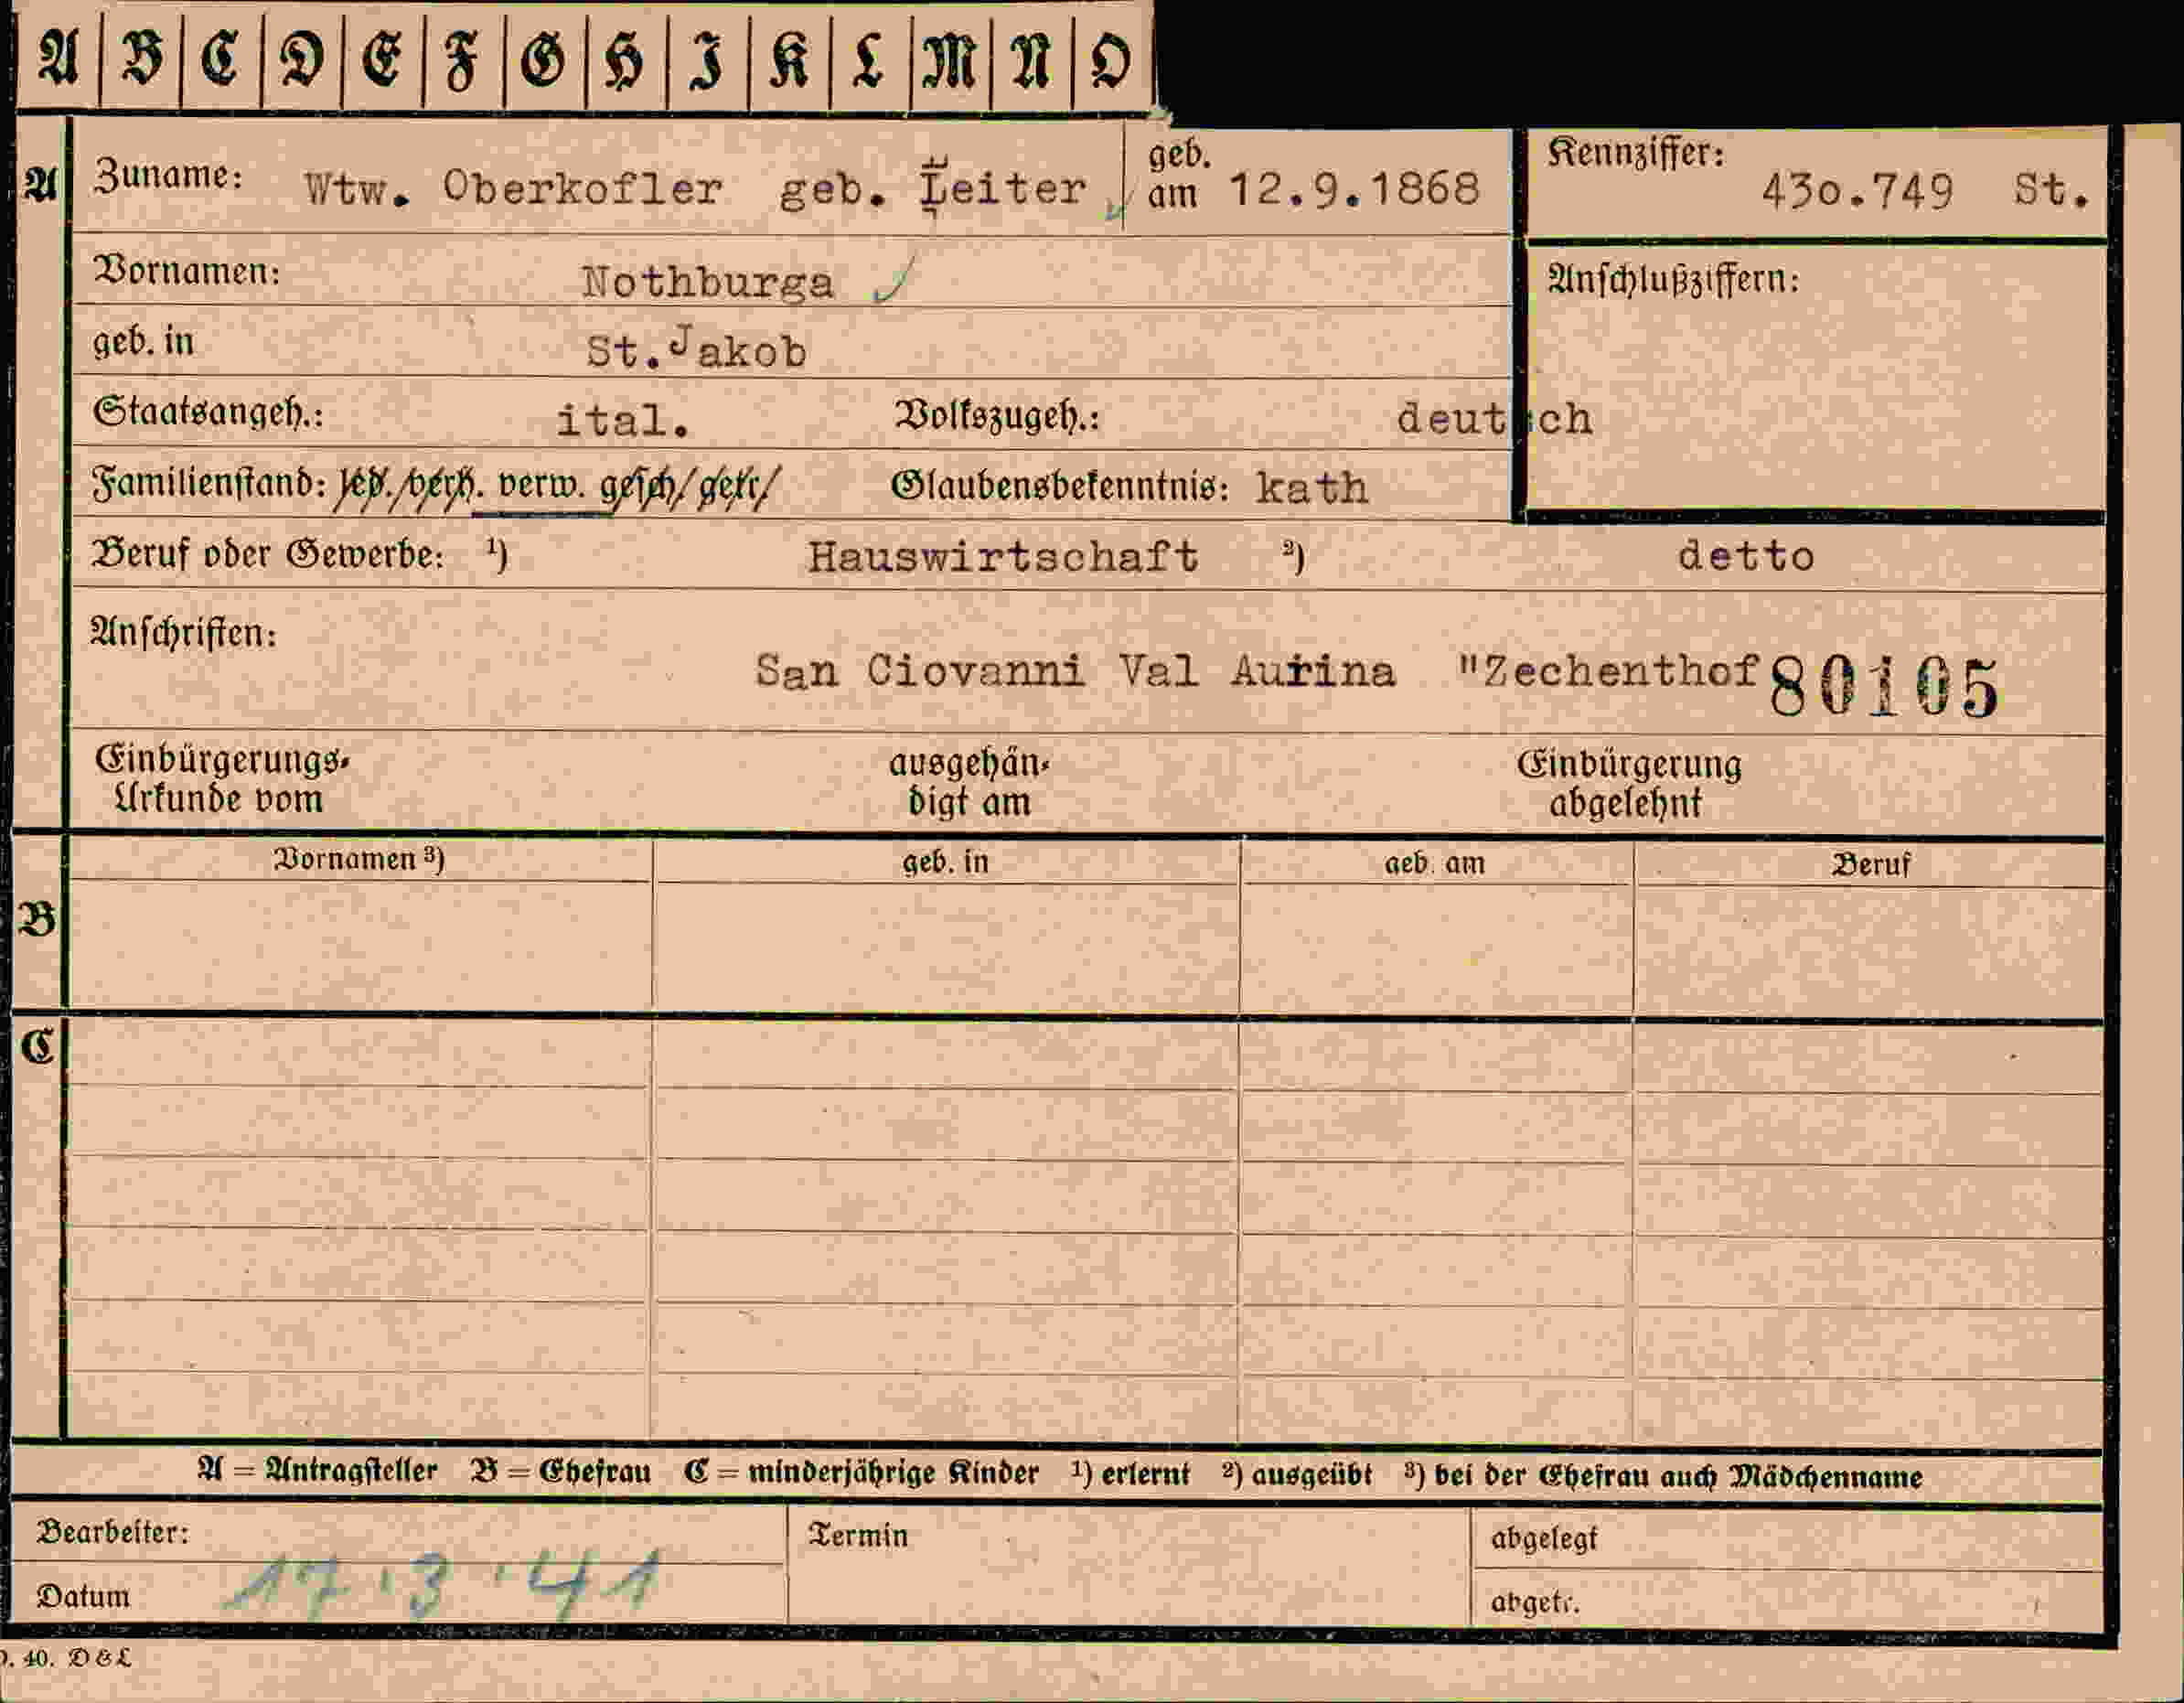 A B C D E F G H I K L M N O
A Zuname: Wtw. Oberkofler geb. Leiter geb. am 12.9.1868 Kennziffer: 430.749 St.
Vornamen: Nothburga Anschlußziffern:
geb. in St.Jakob
Staatsangeh.: ital. Volkszugeh.: deutsch
Familienstand: led./verh. verw. gesch/getr/ Glaubensbekenntnis: kath
Beruf oder Gewerbe: ¹) Hauswirtschaft ²) detto
Anschriften:
San Ciovanni Val Aurina "Zechenthof 80105
Einbürgerungs- ausgehän- Einbürgerung
Urkunde vom digt am abgelehnt
Vornamen ³) geb. in geb. am Beruf
B
C
A = Antragsteller B = Ehefrau C = minderjährige Kinder ¹) erlernt ²) ausgeübt ³) bei der Ehefrau auch Mädchenname
Bearbeiter: Termin abgelegt
Datum 17.3.41 abgetr.
40. D & L